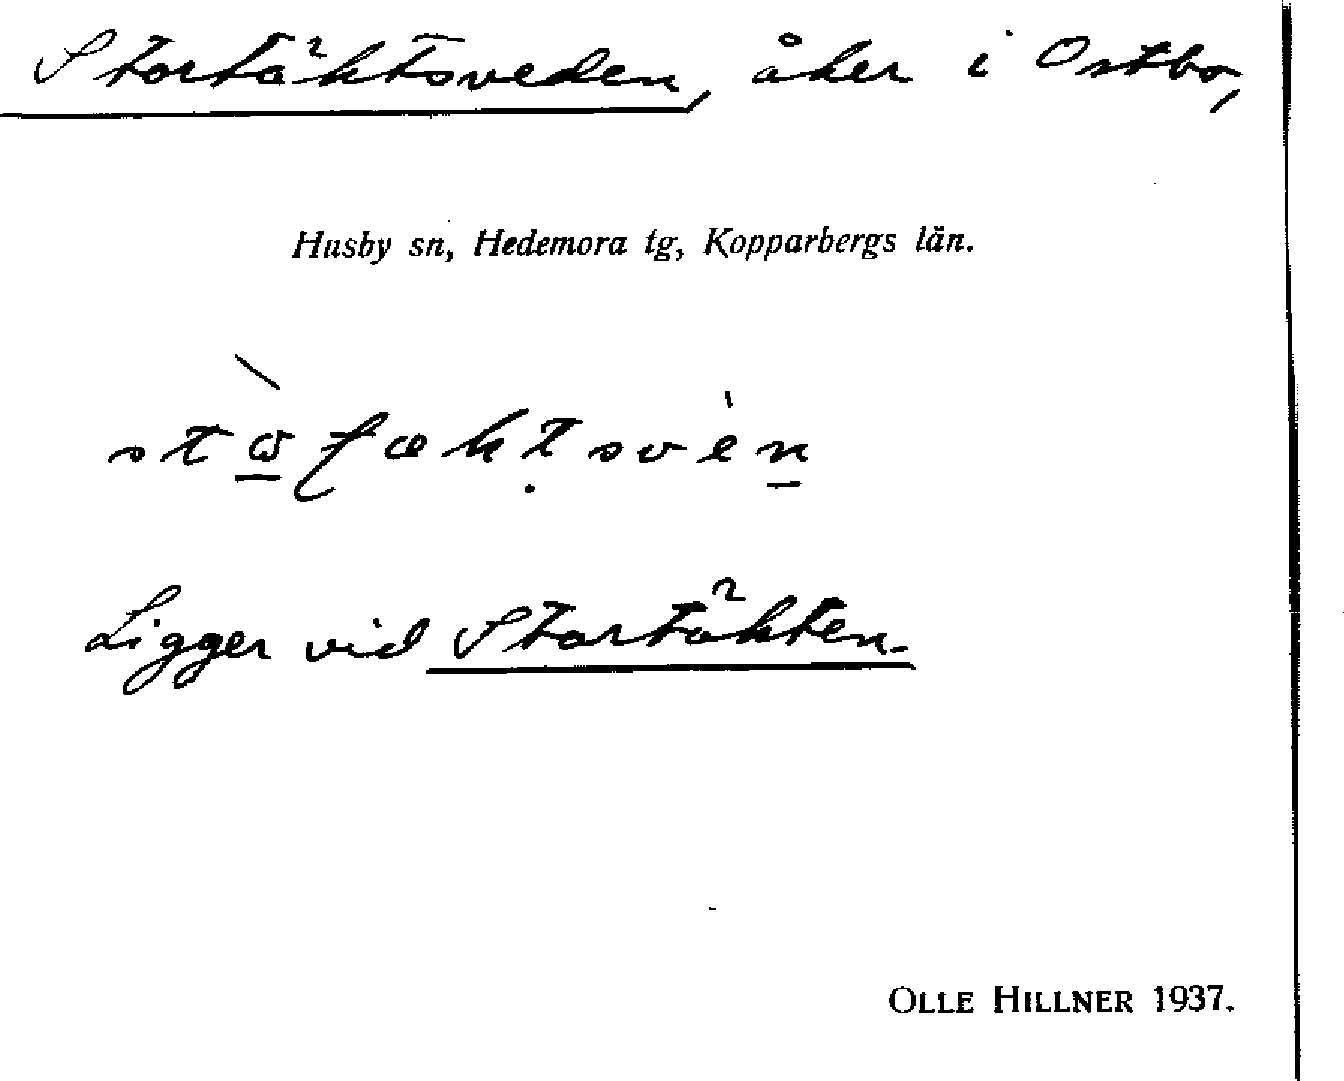 Stortäktsveden, åker i Ostbo,
Husby sn, Hedemora tg, Kopparbergs län.
Ligger vid Stortäkten.
OLLE HILLNER 1937.